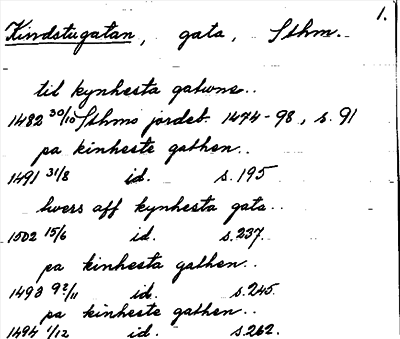 1.
Kindstugatan, gata, Sthm.
til kynhesta gatwne..
1482 30/10 Sthms jordeb. 1474-98, s. 91
pa kinheste gathen..
1491 31/8 id. s. 195
hwers aff kynhesta gata..
1502 15/6 id. s. 237.
pa kinhesta gathen..
1493 9?/11 id. s. 245.
pa kinheste gathen..
1494 1/12 id. s. 262.